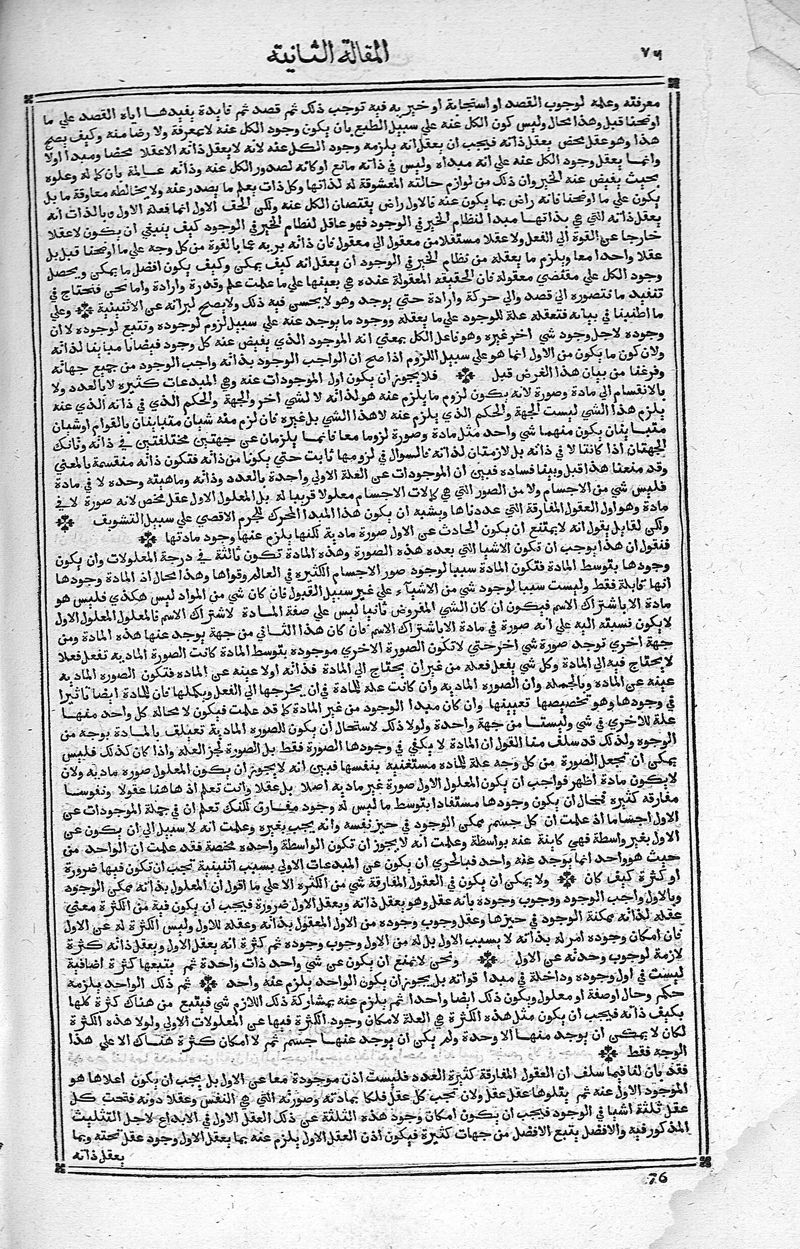 ٧٦ المقالة الثانية
معرفته وعلمه لوجوب القصد او استجابة او خيريه فيه توجب ذلك ثم قصد ثم فايدة يفيدها اياه القصد علي ما
اوضحنا قبل وهذا محال وليس كون الكل عنه علي سبيل الطبع بان يكون وجود الكل عنه لا بمعرفة ولا رضا منه وكيف يصح
هذا وهو عقل محض يعقل ذاته فيجب ان يعقل انه يلزمه وجود الكل عنه لانه لا يعقل ذاته الا عقلا محضا ومبدا اولا
وانما يعقل وجود الكل عنه علي انه مبداه وليس في ذاته مانع او كاره لصدور الكل عنه وذاته عالمة بان كماله وعلوه
بحيث يفيض عنه الخير وان ذلك من لوازم جلالته المعشوقة له لذاتها وكل ذات يعلم ما يصدر عنه ولا يخالطه معاوقة ما بل
يكون علي ما اوضحنا فانه راض بما يكون عنه فالاول راض بفيضان الكل عنه ولكن الحق الاول انما فعله الاول وبالذات انه
يعقل ذاته التي هي بذاتها مبدا لنظام الخير في الوجود فهو عاقل لنظام الخير في الوجود كيف ينبغي ان يكون لا عقلا
خارجا عن القوة الي الفعل ولا عقلا منتقلا من معقول الي معقول فان ذاته بريه عما بالقوة من كل وجه علي ما اوضحنا قبل بل
عقلا واحدا معا ويلزم ما يعقله من نظام الخير في الوجود ان يعقل انه كيف يمكن وكيف يكون افضل ما يمكن ويحصل
وجود الكل علي مقتضي معقوله فان الحقيقة المعقولة عنده هي بعينها علي ما علمت علم وقدرة وارادة واما نحن فنحتاج في
تنفيذ ما نتصوره الي قصد والي حركة وارادة حتي يوجد وهو لا يحسن فيه ذلك ولا يصح لبراته عن الاثنينية وعلي
ما اطنبنا في بيانه فتعقله علة للوجود علي ما يعقله ووجود ما يوجد عنه علي سبيل لزوم لوجوده وتبع لوجوده لا ان
وجوده لاجل وجود شي اخر غيره وهو فاعل الكل بمعني انه الموجود الذي يفيض عنه كل وجود فيضانا مباينا لذاته
ولان كون ما يكون من الاول انما هو علي سبيل اللزوم اذا صح ان الواجب الوجود بذاته واجب الوجود من جميع جهاته
وفرغنا من بيان هذا الغرض قبل فلا يجوز ان يكون اول الموجودات عنه وهي المبدعات كثيرة لا بالعدد ولا
بالانقسام الي مادة وصورة لانه يكون لزوم ما يلزم عنه هو لذاته لا لشي اخر والجهة والحكم الذي في ذاته الذي عنه
يلزم هذا الشي ليست الجهة والحكم الذي يلزم عنه لا هذا الشي بل غيره فان لزم منه شيان متباينان بالقوام او شيان
متباينان يكون منهما شي واحد مثل مادة وصورة لزوما معا فانما يلزمان عن جهتين مختلفتين في ذاته وتانك
الجهتان اذا كانتا لا في ذاته بل لازمتان لذاته فالسوال في لزومها ثابت حتي يكونا من ذاته فتكون ذاته منقسمة بالمعني
وقد منعنا هذا قبل وبينا فساده فبين ان الموجودات عن العلة الاولي واحدة بالعدد وذاته وماهيته وحده لا في مادة
فليس شي من الاجسام ولا من الصور التي هي كمالات الاجسام معلولا قريبا له بل المعلول الاول عقل محض لانه صورة لا في
مادة وهو اول العقول المفارقة التي عددناها ويشبه ان يكون هذا المبدا المحرك للجرم الاقصي علي سبيل التشويف
ولكن لقايل يقول انه لا يمتنع ان يكون الحادث عن الاول صورة مادية لكنها يلزم عنها وجود مادتها
فنقول ان هذا يوجب ان تكون الاشيا التي بعده هذه الصورة وهذه المادة تكون ثالثة في درجة المعلولات وان يكون
وجودها بتوسط المادة فتكون المادة سببا لوجود صور الاجسام الكثيرة في العالم وقواها وهذا محال اذ المادة وجودها
انها قابلة فقط وليست سببا لوجود شي من الاشيآء علي غير سبيل القبول فان كان شي من المواد ليس هكذي فليس هو
مادة الا باشتراك الاسم فيكون ان كان الشي المفروض ثانيا ليس علي صفة المادة لاشتراك الاسم فالمعلول المعلول الاول
لا يكون نسبته اليه علي انه صورة في مادة الا باشتراك الاسم فان كان هذا الثاني من جهة يوجد عنها هذه المادة ومن
جهة اخري توجد صورة شي اخر حتي لا تكون الصورة الاخري موجودة بتوسط المادة كانت الصورة المادية تفعل فعلا
لا يحتاج فيه الي المادة وكل شي يفعل فعله من غير ان يحتاج الي المادة فذاته اولا عينه عن المادة فتكون الصورة المادية
عينه عن المادة وبالجملة وان الصورة المادية وان كانت علة للمادة في ان يخرجها الي الفعل ويكملها فان للمادة ايضا تاثيرا
في وجودها وهو تخصيصها تعيينها وان كان مبدا الوجود من غير المادة كما قد علمت فيكون لا محالة كل واحد منهما
علة للاخري في شي وليستا من جهة واحدة ولولا ذلك لاستحال ان يكون للصورة المادية تعليف بالمادة بوجه من
الوجوه ولذلك قد سلف منا القول ان المادة لا يكفي في وجودها الصورة فقط بل الصورة كجز العلة واذا كان كذلك فليس
يمكن ان نجعل الصورة من كل وجه علة للمادة مستغنية بنفسها فبين انه لا يجوز ان يكون المعلول صورة مادية ولان
لا يكون مادة اظهر فواجب ان يكون المعلول الاول صورة غير مادية اصلا بل عقلا وانت تعلم اذ هاهنا عقولا ونفوسا
مفارقة كثيرة فمحال ان يكون وجودها مستفادا بتوسط ما ليس له وجود مفارق لكنك تعلم ان في جملة الموجودات عن
الاول اجساما اذ علمت ان كل جسم ممكن الوجود في حيز نفسه وانه يجب بغيره وعلمت انه لا سبيل الي ان يكون عن
الاول بغير واسطة فهي كاينة عنه بواسطة وعلمت انه لا يجوز ان تكون الواسطة واحدة محضة فقد علمت ان الواحد من
حيث هو واحد انما يوجد عنه واحد فبالحري ان يكون عن المبدعات الاولي بسبب اثنينية تجب ان تكون فيها ضرورة
او كثرة كيف كان ولا يمكن ان يكون في العقول المفارقة شي من الكثرة الا علي ما اقول ان المعلول بذاته ممكن الوجود
وبالاول واجب الوجود ووجوب وجوده بانه عقل وهو يعقل ذاته ويعقل الاول ضرورة فيجب ان يكون فيه من الكثرة معني
عقله لذاته ممكنة الوجود في حيزها وعقل وجوب وجوده من الاول المعقول بذاته وعقله للاول وليس الكثرة له عن الاول
فان امكان وجوده امر له بذاته لا بسبب الاول بل له من الاول وجوب وجوده ثم كثرة انه يعقل الاول ويعقل ذاته كثرة
لازمة لوجوب وحدته عن الاول ونحن لا نمنع ان يكون عن شي واحد ذات واحدة ثم يتبعها كثرة اضافية
ليست في اول وجوده وداخلة في مبدا قوامه بل يجوز ان يكون الواحد يلزم عنه واحد ثم ذلك الواحد يلزمه
حكم وحال او صفة او معلول ويكون ذلك ايضا واحدا ثم يلزم عنه بمشاركة ذلك اللازم شي فيتبع من هناك كثرة كلها
يكيف ذاته فيجب ان يكون مثل هذه الكثرة هي العلة لامكان وجود الكثرة فيها عن المعلولات الاولي ولولا هذه الكثرة
لكان لا يمكن ان يوجد منها الا وحدة ولم يكن ان يوجد عنها جسم ثم لا امكان كثرة هناك الا علي هذا
الوجه فقط
فقد بان لنا فيما سلف ان العقول المفارقة كثيرة العدد فليست اذن موجودة معا عن الاول بل يجب ان يكون اعلاها هو
الموجود الاول عنه ثم يتلوها عقل عقل ولان تحب كل عقل فلكا بمادته وصورته التي هي النفس وعقلا دونه فتحت كل
عقل ثلثة اشيا في الوجود فيجب ان يكون امكان وجود هذه الثلثة عن ذلك العقل الاول في الابداع لاجل التثليث
المذكور فيه والافضل يتبع الافضل من جهات كثيرة فيكون اذن العقل الاول يلزم عنه بما يعقل الاول وجود عقل تحته وبما
يعقل ذاته
76